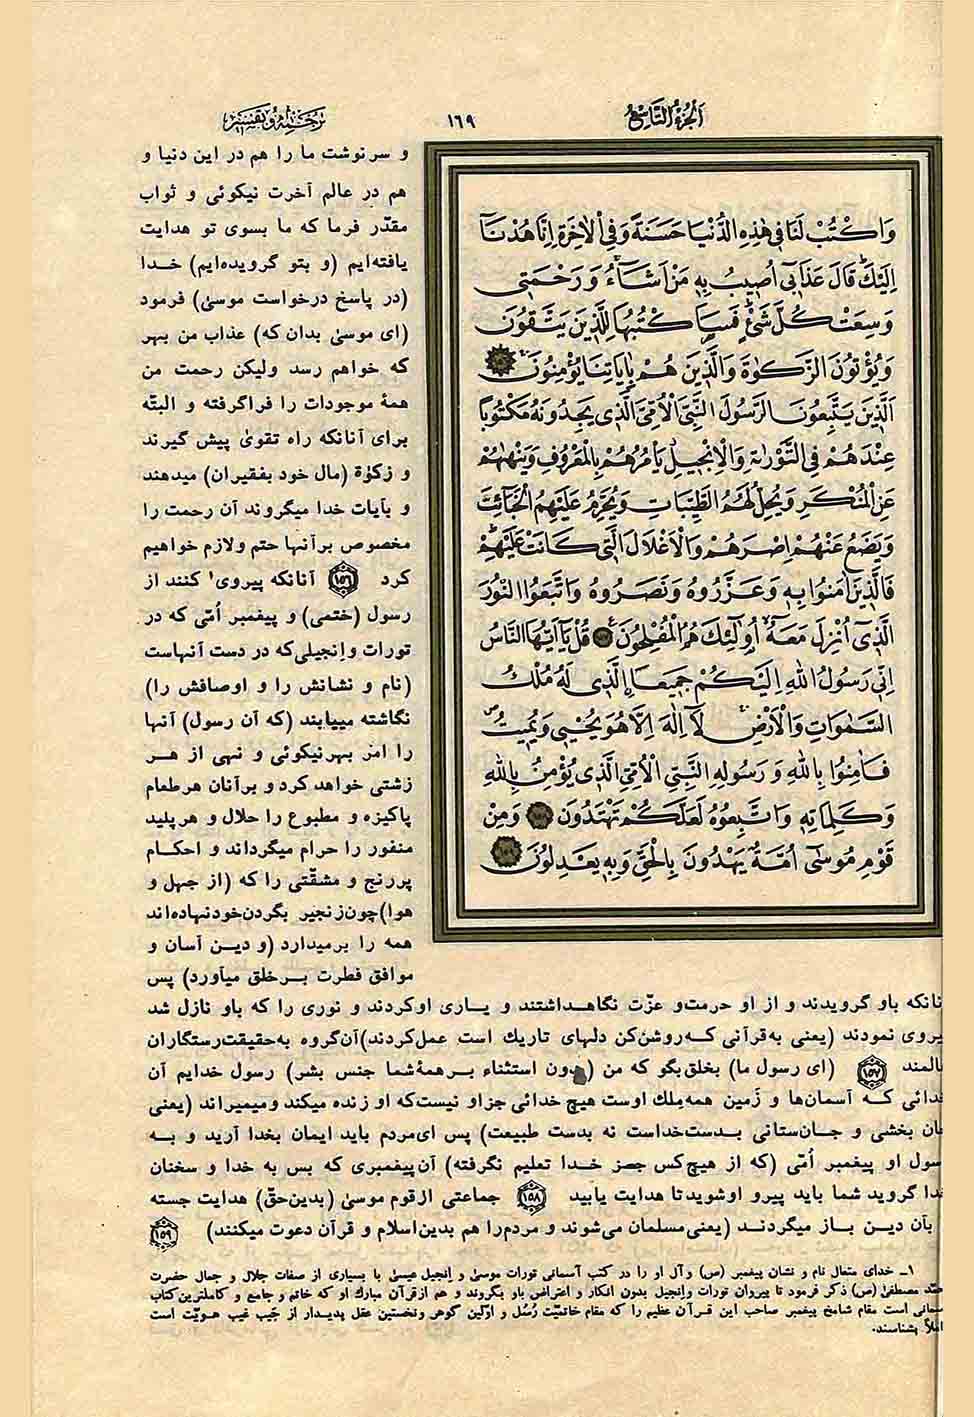 اَلجُزءُ التّاسِعُ
١٦٩
ترجمه و تفسیر
وَاكْتُبْ لَنَا فِي هٰذِهِ الدُّنْيَا حَسَنَةً وَفِي الْاٰخِرَةِ اِنَّا هُدْنَآ
اِلَيْكَ قَالَ عَذَابِيٓ اُصِيبُ بِهِ مَنْ اَشَآءُ وَرَحْمَتِي
وَسِعَتْ كُلَّ شَيْءٍ فَسَاَكْتُبُهَا لِلَّذِينَ يَتَّقُونَ
وَيُؤْتُونَ الزَّكٰوةَ وَالَّذِينَ هُمْ بِاٰيَاتِنَا يُؤْمِنُونَ
اَلَّذِينَ يَتَّبِعُونَ الرَّسُولَ النَّبِيَّ الْاُمِّيَّ الَّذِي يَجِدُونَهُ مَكْتُوبًا
عِنْدَهُمْ فِي التَّوْرٰيةِ وَالْاِنْجِيلِ يَأْمُرُهُمْ بِالْمَعْرُوفِ وَيَنْهٰيهُمْ
عَنِ الْمُنْكَرِ وَيُحِلُّ لَهُمُ الطَّيِّبَاتِ وَيُحَرِّمُ عَلَيْهِمُ الْخَبَآئِثَ
وَيَضَعُ عَنْهُمْ اِصْرَهُمْ وَالْاَغْلَالَ الَّتِي كَانَتْ عَلَيْهِمْ
فَالَّذِينَ اٰمَنُوا بِهِ وَعَزَّرُوهُ وَنَصَرُوهُ وَاتَّبَعُوا النُّورَ
الَّذِيٓ اُنْزِلَ مَعَهُ اُولٰٓئِكَ هُمُ الْمُفْلِحُونَ قُلْ يَآ اَيُّهَا النَّاسُ
اِنِّي رَسُولُ اللّٰهِ اِلَيْكُمْ جَمِيعًا اِلَّذِي لَهُ مُلْكُ
السَّمٰوَاتِ وَالْاَرْضِ لَآ اِلٰهَ اِلَّا هُوَ يُحْيِي وَيُمِيتُ
فَاٰمِنُوا بِاللّٰهِ وَرَسُولِهِ النَّبِيِّ الْاُمِّيِّ الَّذِي يُؤْمِنُ بِاللّٰهِ
وَكَلِمَاتِهِ وَاتَّبِعُوهُ لَعَلَّكُمْ تَهْتَدُونَ وَمِنْ
قَوْمِ مُوسٰٓى اُمَّةٌ يَهْدُونَ بِالْحَقِّ وَبِهِ يَعْدِلُونَ
و سرنوشت ما را هم در این دنیا و
هم در عالم آخرت نیکوئی و ثواب
مقدّر فرما که ما بسوی تو هدایت
یافته‌ایم (و بتو گرویده‌ایم) خدا
(در پاسخ درخواست موسیٰ) فرمود
(ای موسیٰ بدان که) عذاب من بهر
که خواهم رسد ولیکن رحمت من
همهٔ موجودات را فراگرفته و البتّه
برای آنانکه راه تقویٰ پیش گیرند
و زکوٰة (مال خود بفقیران) میدهند
و بآیات خدا میگروند آن رحمت را
مخصوص برآنها حتم ولازم خواهیم
کرد ۱۵۶ آنانکه پیروی۱ کنند از
رسول (ختمی) و پیغمبر اُمّی که در
تورات وانجیلی‌که در دست آنهاست
(نام و نشانش را و اوصافش را)
نگاشته مییابند (که آن رسول) آنها
را امر بهرنیکوئی و نهی از هر
زشتی خواهد کرد و برآنان هرطعام
پاکیزه و مطبوع را حلال و هرپلید
منفور را حرام میگرداند و احکام
پررنج و مشقّتی را که (از جهل و
هوا)چون‌زنجیر بگردن‌خودنهاده‌اند
همه را برمیدارد (و دین آسان و
موافق فطرت برخلق میآورد) پس
نانکه باو گرویدند و از او حرمت‌و عزّت نگاهداشتند و یاری اوکردند و نوری را که باو نازل شد
یروی نمودند (یعنی به‌قرآنی که‌روشن‌کن دلهای تاریک است عمل‌کردند)آن‌گروه به‌حقیقت‌رستگاران
المند ۱۵۷ (ای رسول ما) بخلق‌بگو که من (بدون استثناء برهمهٔ‌شما جنس بشر) رسول خدایم آن
دائی که آسمان‌ها و زَمین همه‌مِلك اوست هیچ خدائی جزاو نیست‌که او زنده میکند ومیمیراند (یعنی
ان بخشی و جان‌ستانی بدست‌خداست نه بدست طبیعت) پس ای‌مردم باید ایمان بخدا آرید و به
سول او پیغمبر اُمّی (که از هیچ‌کس جصز خدا تعلیم نگرفته) آن‌پیغمبری که بس به خدا و سخنان
دا گروید شما باید پیرو اوشویدتا هدایت یابید ۱۵۸ جماعتی ازقوم موسیٰ (بدین‌حقّ) هدایت جسته
بآن دین باز میگردند (یعنی‌مسلمان می‌شوند و مردم‌را هم بدین‌اسلام و قرآن دعوت میکنند) ۱۵۹
۱ـ خدای متعال نام و نشان پیغمبر (ص) وآل او را در کتب آسمانی تورات موسیٰ و اِنجیل عیسیٰ با بسیاری از صفات جلال و جمال حضرت
مّد مصطفیٰ (ص) ذکر فرمود تا پیروان تورات واِنجیل بدون انکار و اعتراض باو بگروند و هم ازقرآن مبارك او که خاتم و جامع و کاملترین‌کتاب
سمانی است مقام شامخ پیغمبر صاحب این قرآن عظیم را که مقام خاتمیّت رُسُل و اوّلین گوهر ونخستین عقل پدیدار از جَیب غیب هویّت است
املاً بشناسند.